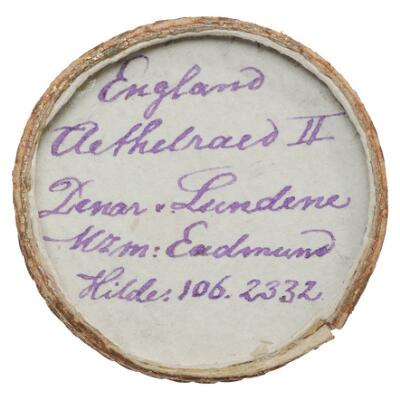 England
Aethelraed II
Denar v. Lundene
Mzm: Eadmund
Hilde: 106. 2332